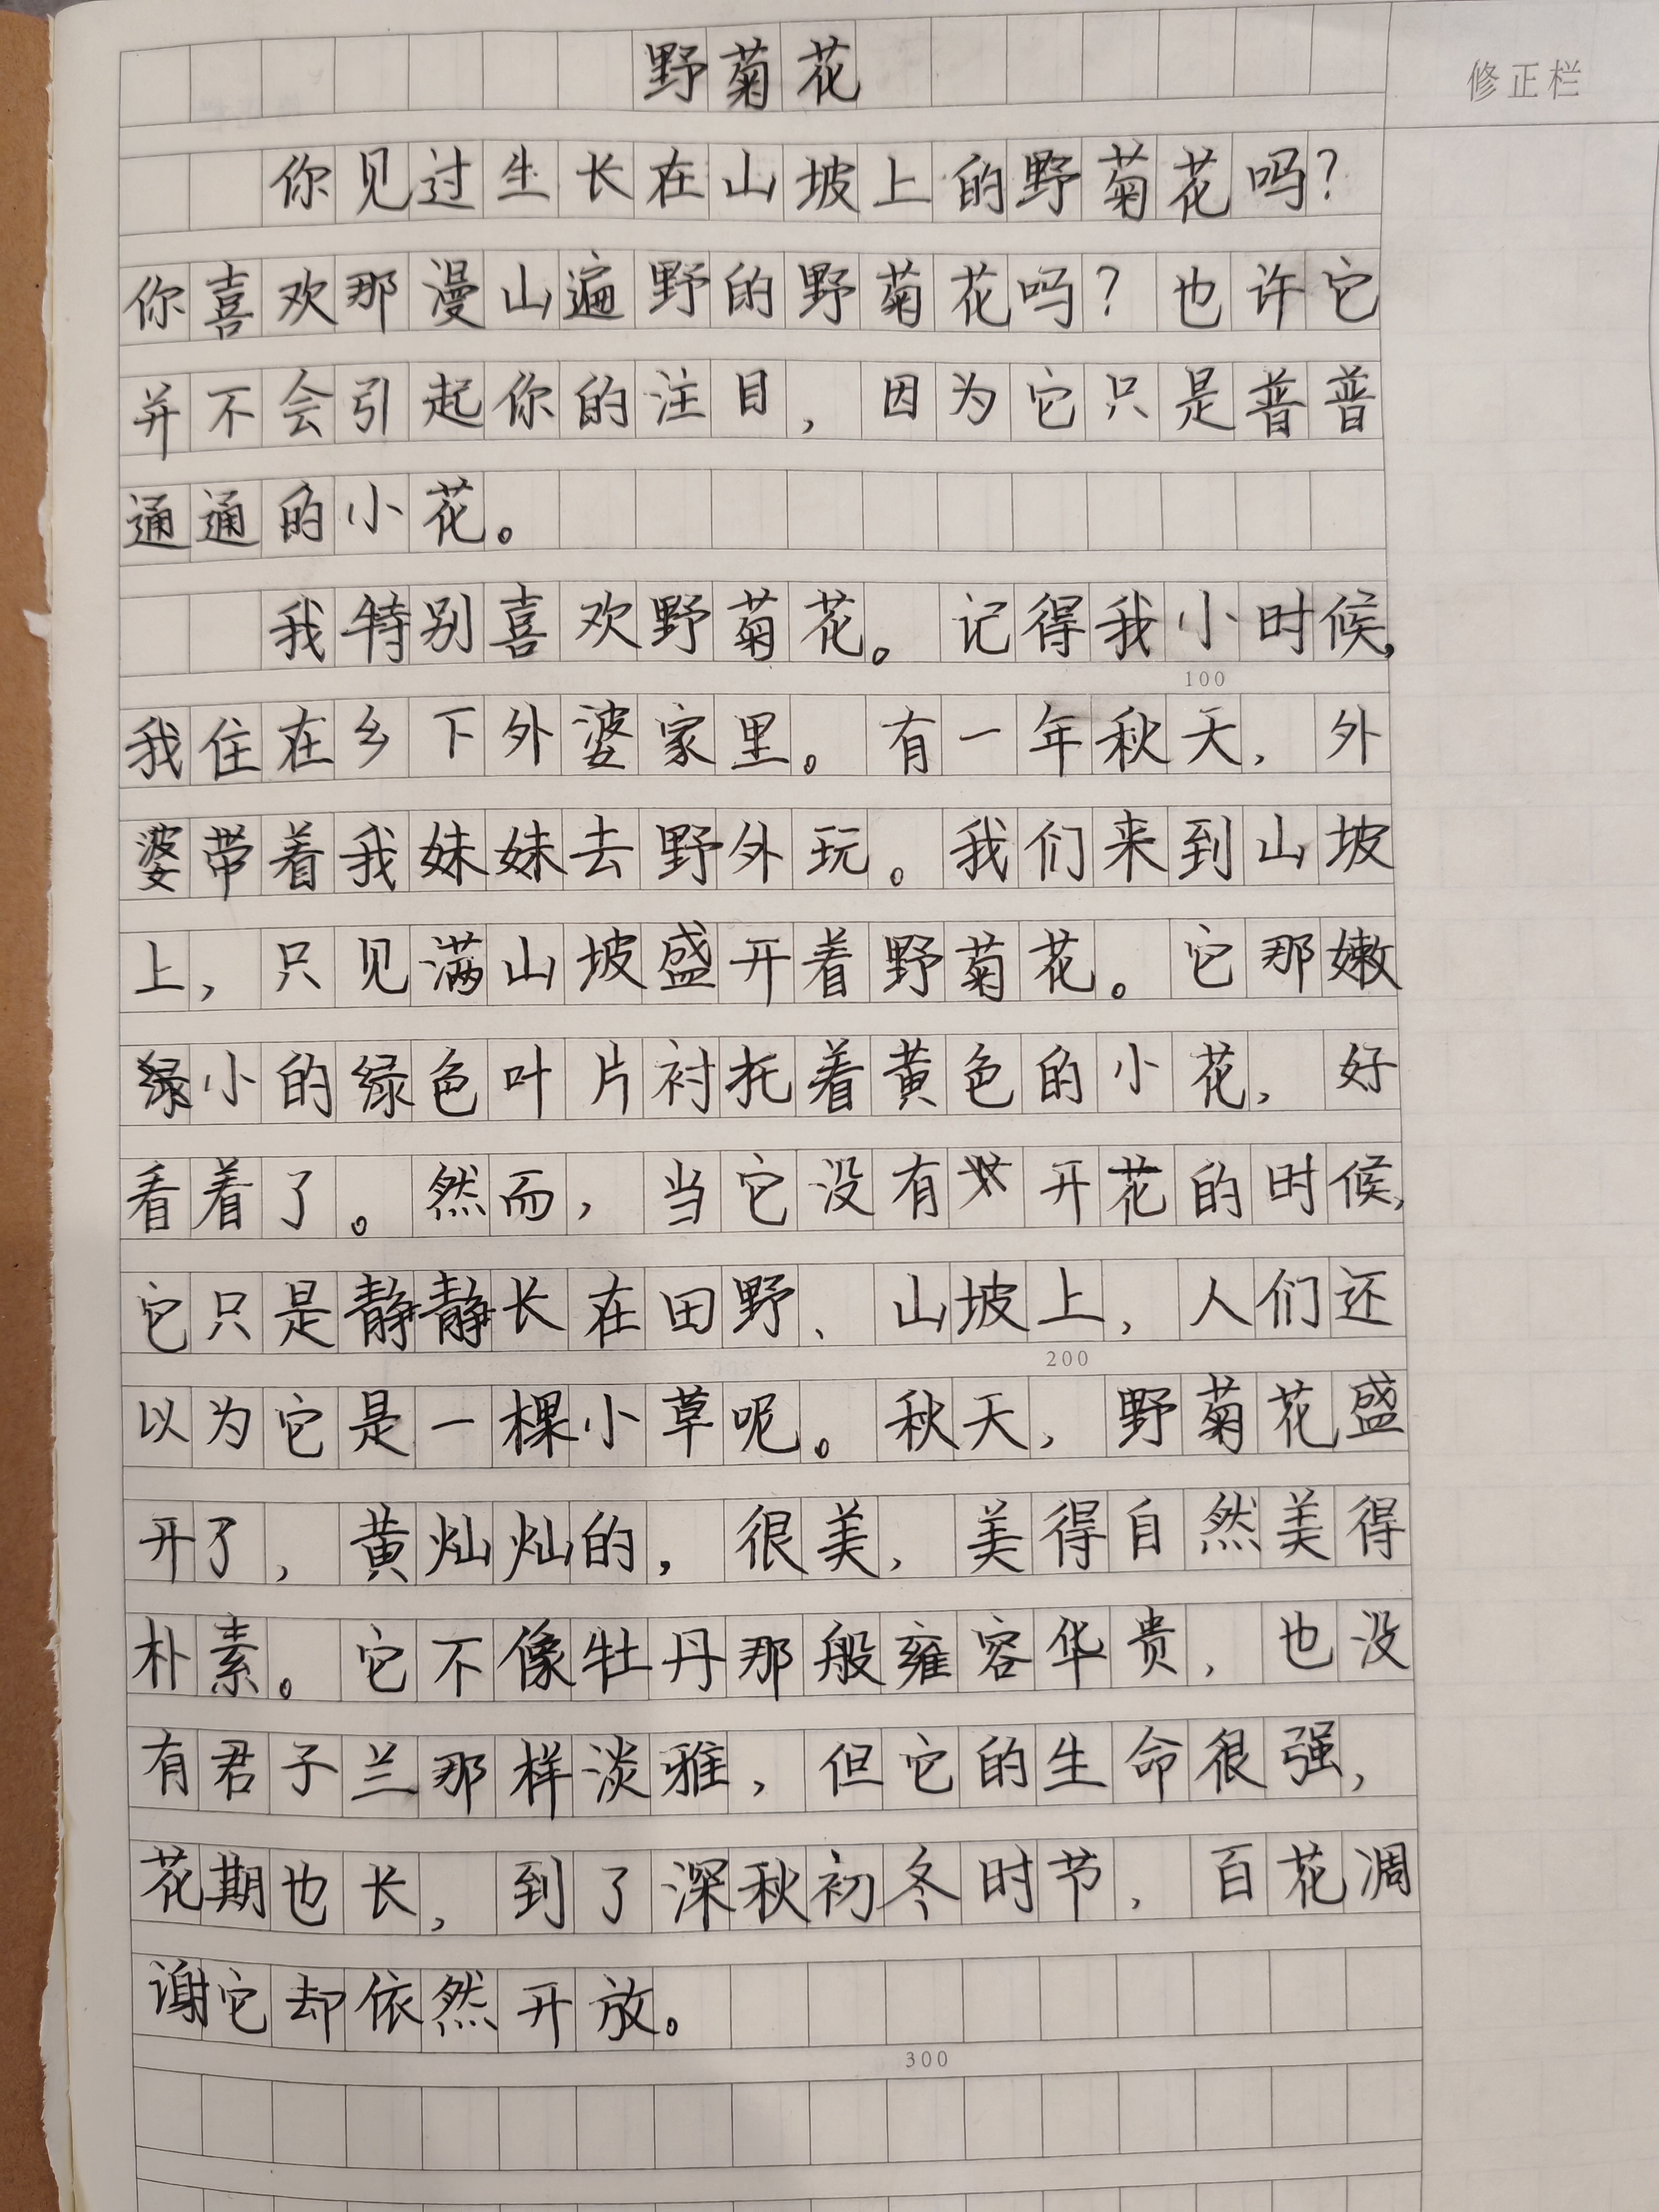 野菊花
修正栏
你见过生长在山坡上的野菊花吗？
你喜欢那漫山遍野的野菊花吗？也许它
并不会引起你的注目，因为它只是普普
通通的小花。
我特别喜欢野菊花。记得我小时候，
100
我住在乡下外婆家里。有一年秋天，外
婆带着我妹妹去野外玩。我们来到山坡
上，只见满山坡盛开着野菊花。它那嫩
小的绿色叶片衬托着黄色的小花，好
看着了。然而，当它没有开花的时候，
它只是静静长在田野、山坡上，人们还
200
以为它是一棵小草呢。秋天，野菊花盛
开了，黄灿灿的，很美，美得自然美得
朴素。它不像牡丹那般雍容华贵，也没
有君子兰那样淡雅，但它的生命很强，
花期也长，到了深秋初冬时节，百花凋
谢它却依然开放。
300